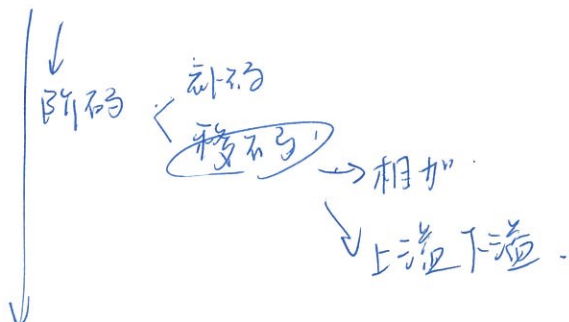 补码
阶码
移码
相加
上溢下溢.